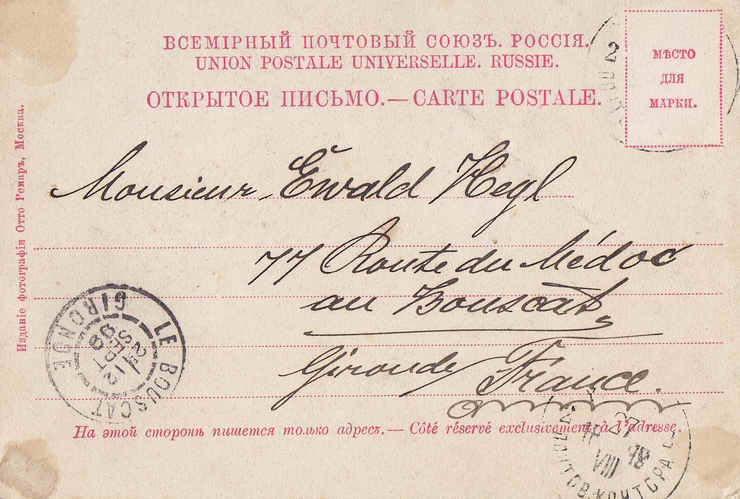 ВСЕМІРНЫЙ ПОЧТОВЫЙ СОЮЗЪ. РОССІЯ.
UNION POSTALE UNIVERSELLE. RUSSIE.
ОТКРЫТОЕ ПИСЬМО.—CARTE POSTALE.
2
МѢСТО
ДЛЯ
МАРКИ.
Monsieur Ewald Hegl
77 Route du Médoc
au Bouscat,
Gironde France.
LE BOUSCAT
GIRONDE
27
VIII
ПОЧТОВ. КОНТОРА
На этой сторонѣ пишется только адресъ.— Côté réservé exclusivement à l'adresse.
Изданіе фотографіи Отто Ремаръ, Москва.